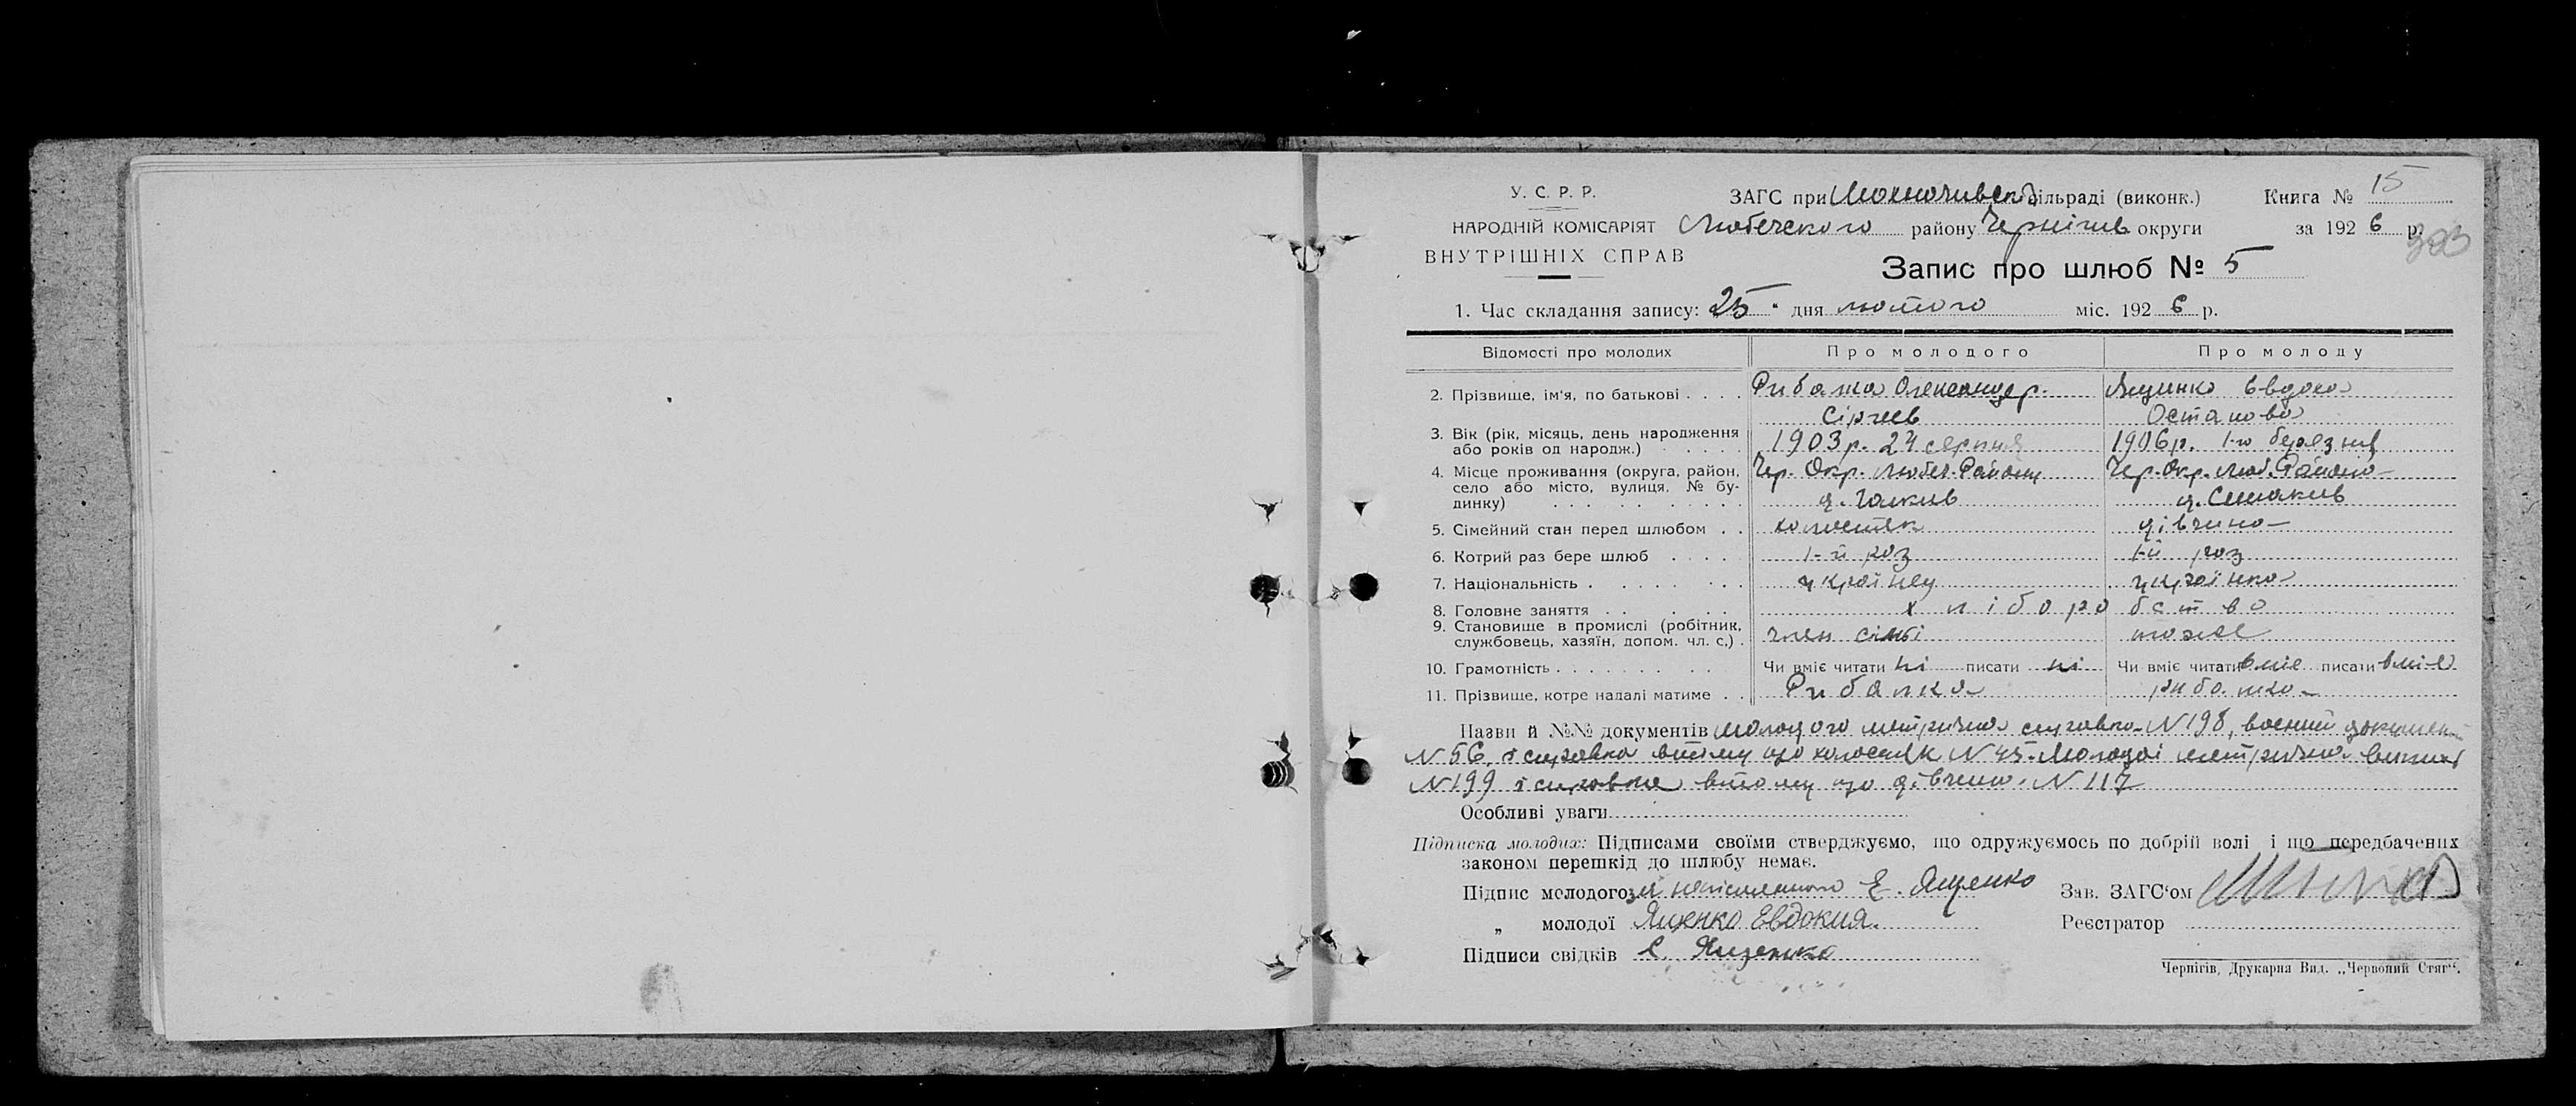 У. С. Р. Р.
НАРОДНІЙ КОМІСАРІЯТ
ВНУТРІШНІХ СПРАВ
ЗАГС при сільраді (виконк.)
Любечского району Чернігів округи
Книга № 15
за 1926 р.
Запис про шлюб № 5
1. Час складання запису: 25 " дня лютого міс. 1926 р.
Відомості про молодих Про молодого Про молоду
2. Прізвище, ім'я, по батькові . . . . Рибалка Олександр. Ященко Евдокия
Сергеев Остапова
3. Вік (рік, місяць, день народження 1903 р. 24 серпня 1906 р. 1-го березня
або років од народж.) . . . . .
4. Місце проживання (округа, район, Чер. Окр. Любеч. Району Чер. Окр. Люб. Району
село або місто, вулиця, № бу-
динку)
5. Сімейний стан перед шлюбом . . холостяк дівчина
6. Котрий раз бере шлюб . . . . 1-й раз 1-й раз
7. Національність . . . . . . . українец українка
8. Головне заняття . . . . . . хліборобство
9. Становище в промислі (робітник, член сімї тоже
службовець, хазяїн, допом. чл. с.) .
10. Грамотність . . . . . . . . Чи вміє читати ні писати ні Чи вміє читати вміє писати вміє
11. Прізвище, котре надалі матиме . . Рибалка рибалка
Назви й №№ документів молодого метрична справка N 198, воений документ
N 56, і справка втому що холостяк N 45. Молодої метрична
N 199 і справка втому що дівчина. N 117
Особливі уваги
Підписка молодих: Підписами своїми стверджуємо, що одружуємось по добрій волі і що передбачених
законом перешкід до шлюбу немає.
Підпис молодого за неписьменного Е. Ященко Зав. ЗАГС'ом
" молодої Ященко Евдокия. Реєстратор
Підписи свідків Е. Ященко
Чернігів, Друкарня Вид. „Червоний Стяг".